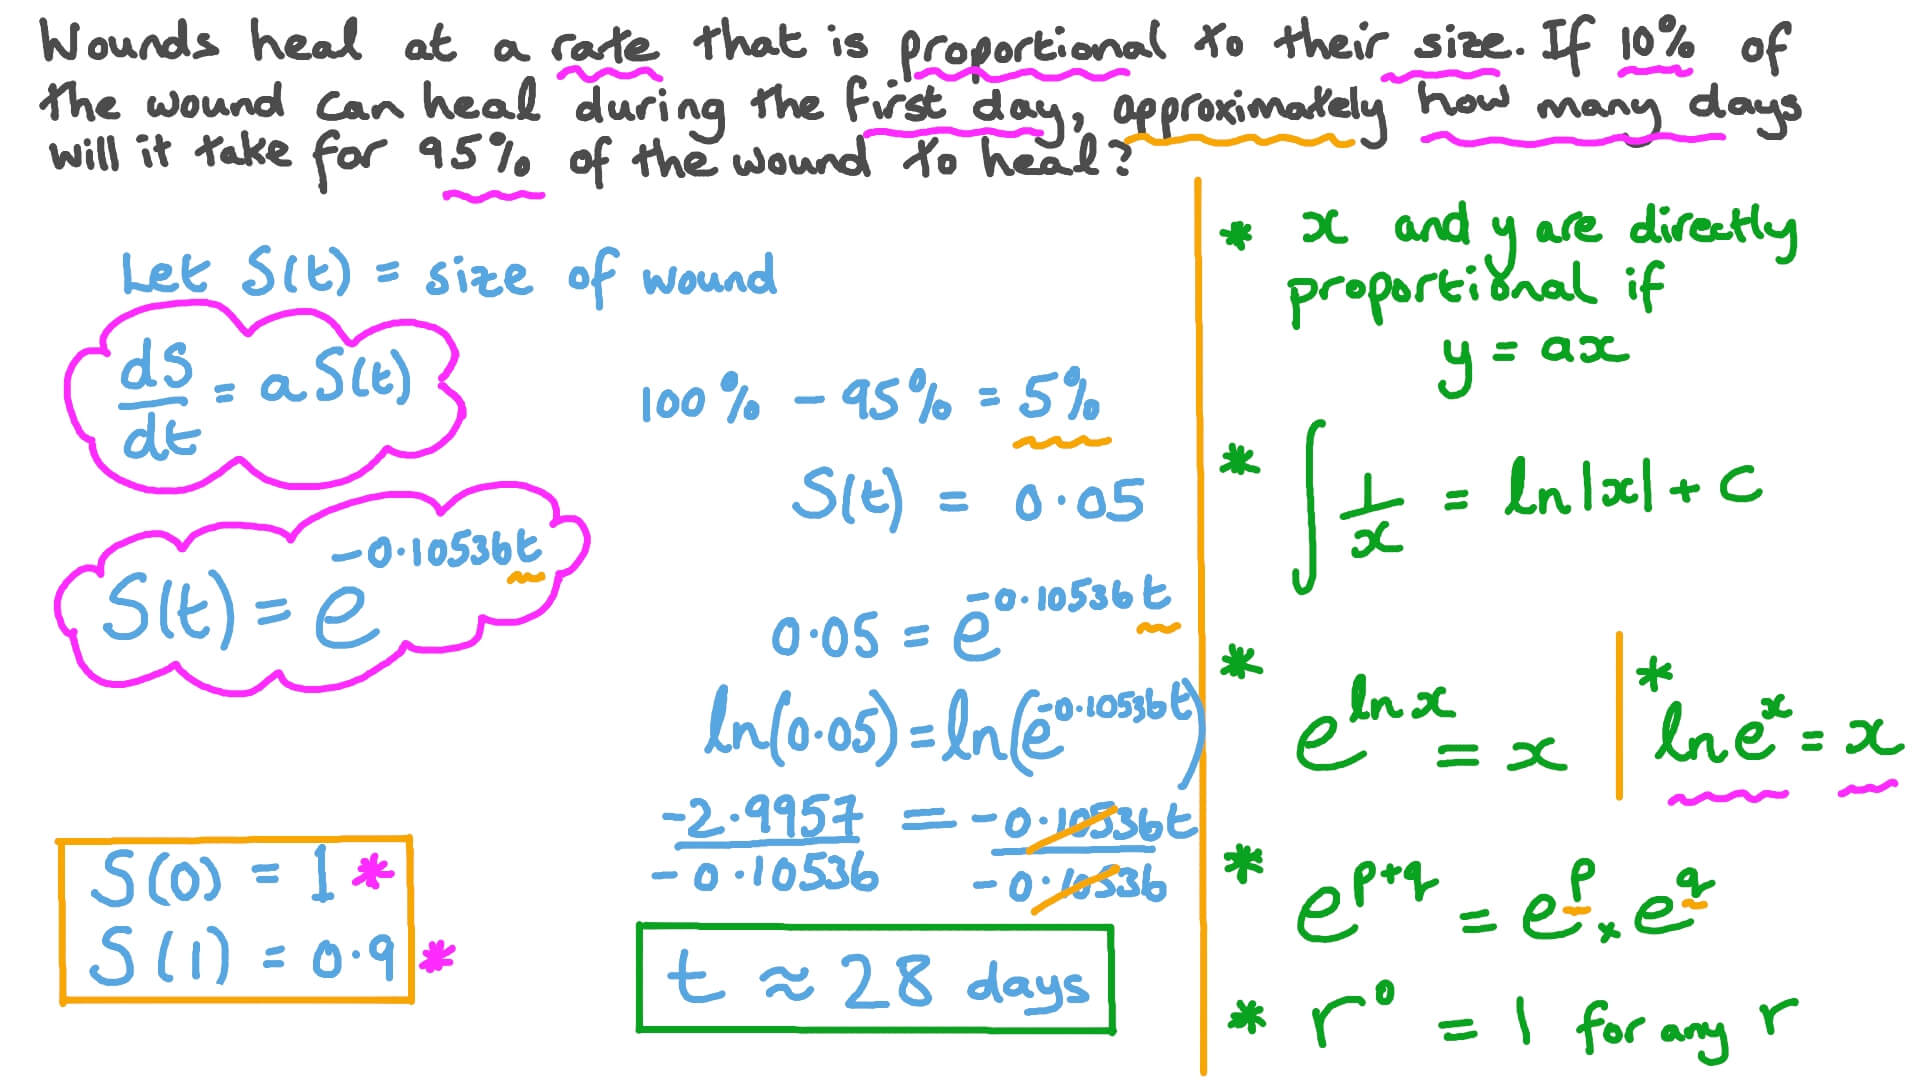 Wounds heal at a rate that is proportional to their size. If 10% of
the wound can heal during the first day, approximately how many days
will it take for 95% of the wound to heal?
Let S(t) = size of wound
dS/dt = a S(t)
S(t) = e^-0.10536t
S(0) = 1 *
S(1) = 0.9 *
100% - 95% = 5%
S(t) = 0.05
0.05 = e^-0.10536t
ln(0.05) = ln(e^-0.10536t)
-2.9957/-0.10536 = -0.10536t/-0.10536
t ≈ 28 days
* x and y are directly
proportional if
y = ax
* ∫ 1/x = ln|x| + C
* e^ln x = x
* ln e^x = x
* e^p+q = e^p × e^q
* r^0 = 1 for any r